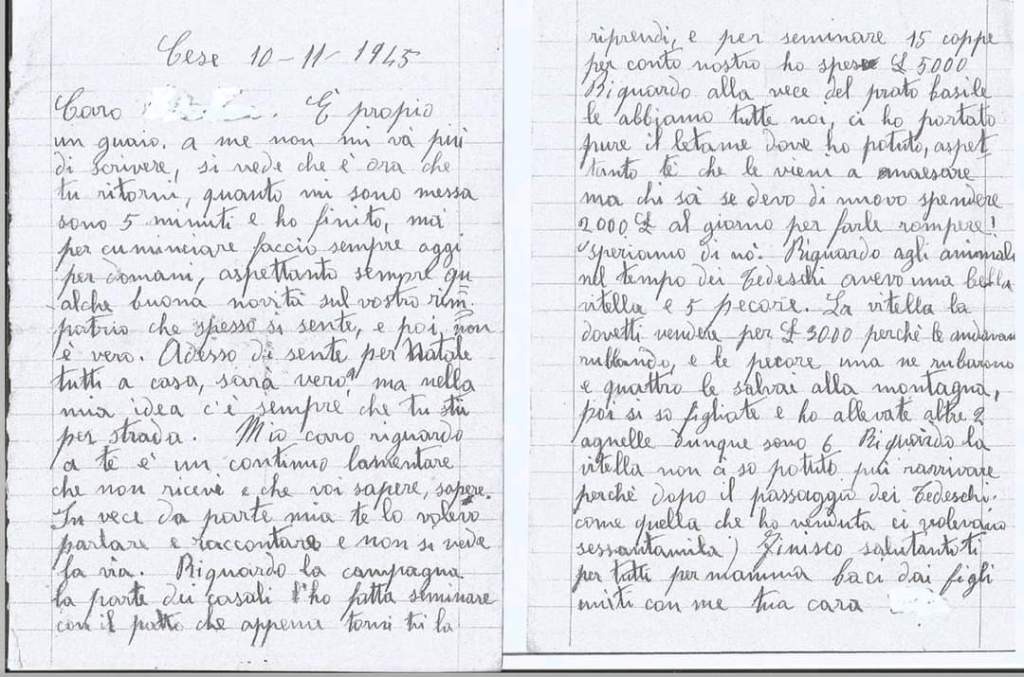 Cese 10-11-1945
Caro . È propio
un guaio. a me non mi và più
di scrivere, si vede che è ora che
tu ritorni, quanto mi sono messa
sono 5 minuti e ho finito, ma
per cuminciare faccio sempre oggi
per domani, aspettanto sempre qu
alche buona novità sul vostro rim=
patrio che spesso si sente, e poi, non
è vero. Adesso di sente per Natale
tutti a casa, sarà vero? ma nella
mia idea c'è sempre che tu stii
per strada. Mio caro riguardo
a te è un continuo lamentare
che non ricevi e che voi sapere, sapere.
In vece da parte mia te lo volevo
parlare e raccontare e non si vede
la via. Riguardo la campagna
la parte dei casali l'ho fatta seminare
con il patto che appena torni tu la
riprendi, e per seminare 15 coppe
per conto nostro ho speso £ 5000
Riguardo alla vece del prato basile
le abbiamo tutte noi, ci ho portato
pure il letame dove ho potuto, aspet=
tanto te che le vieni a maesare
ma chi sà se devo di nuovo spendere
2000 £ al giorno per farle rompere!
speriamo di nò. Riguardo agli animali
nel tempo dei Tedeschi avevo una bella
vitella e 5 pecore. La vitella la
dovetti vendere per £ 3000 perchè le andavano
rubbando, e le pecore una ne rubarono
e quattro le salvai alla montagna,
poi si so figliate e ho allevate altre 2
agnelle dunque sono 6 Riguàrdo la
vitella non ci so potuto più ravvivare
perchè dopo il passaggio dei Tedeschi.
come quella che ho venduta ci volevano
sessantamila) Finisco salutantoti
per tutti per mamma baci dai figli
uniti con me tua cara